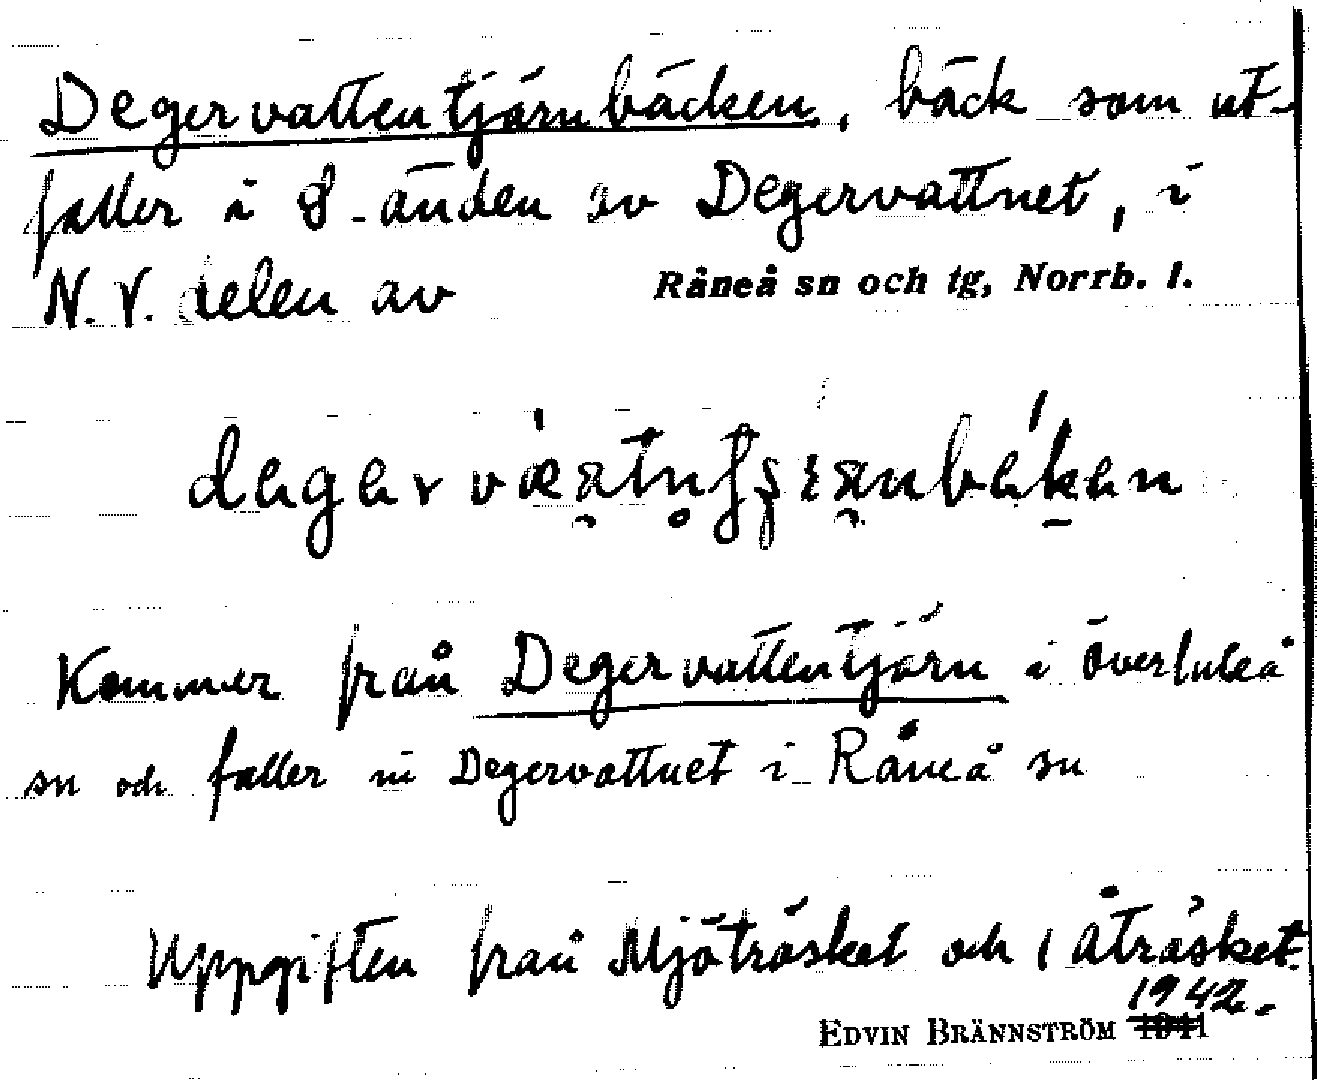 Degervattentjärnbäcken, bäck som ut-
faller i S-änden av Degervattnet, i
N.V. delen av Råneå sn och tg, Norrb. l.
Kommer från Degervattentjärn i Överluleå
sn och faller ut i Degervattnet i Råneå sn
Uppgiften från Mjöträsket och Åträsket.
1942.-
EDVIN BRÄNNSTRÖM 1941